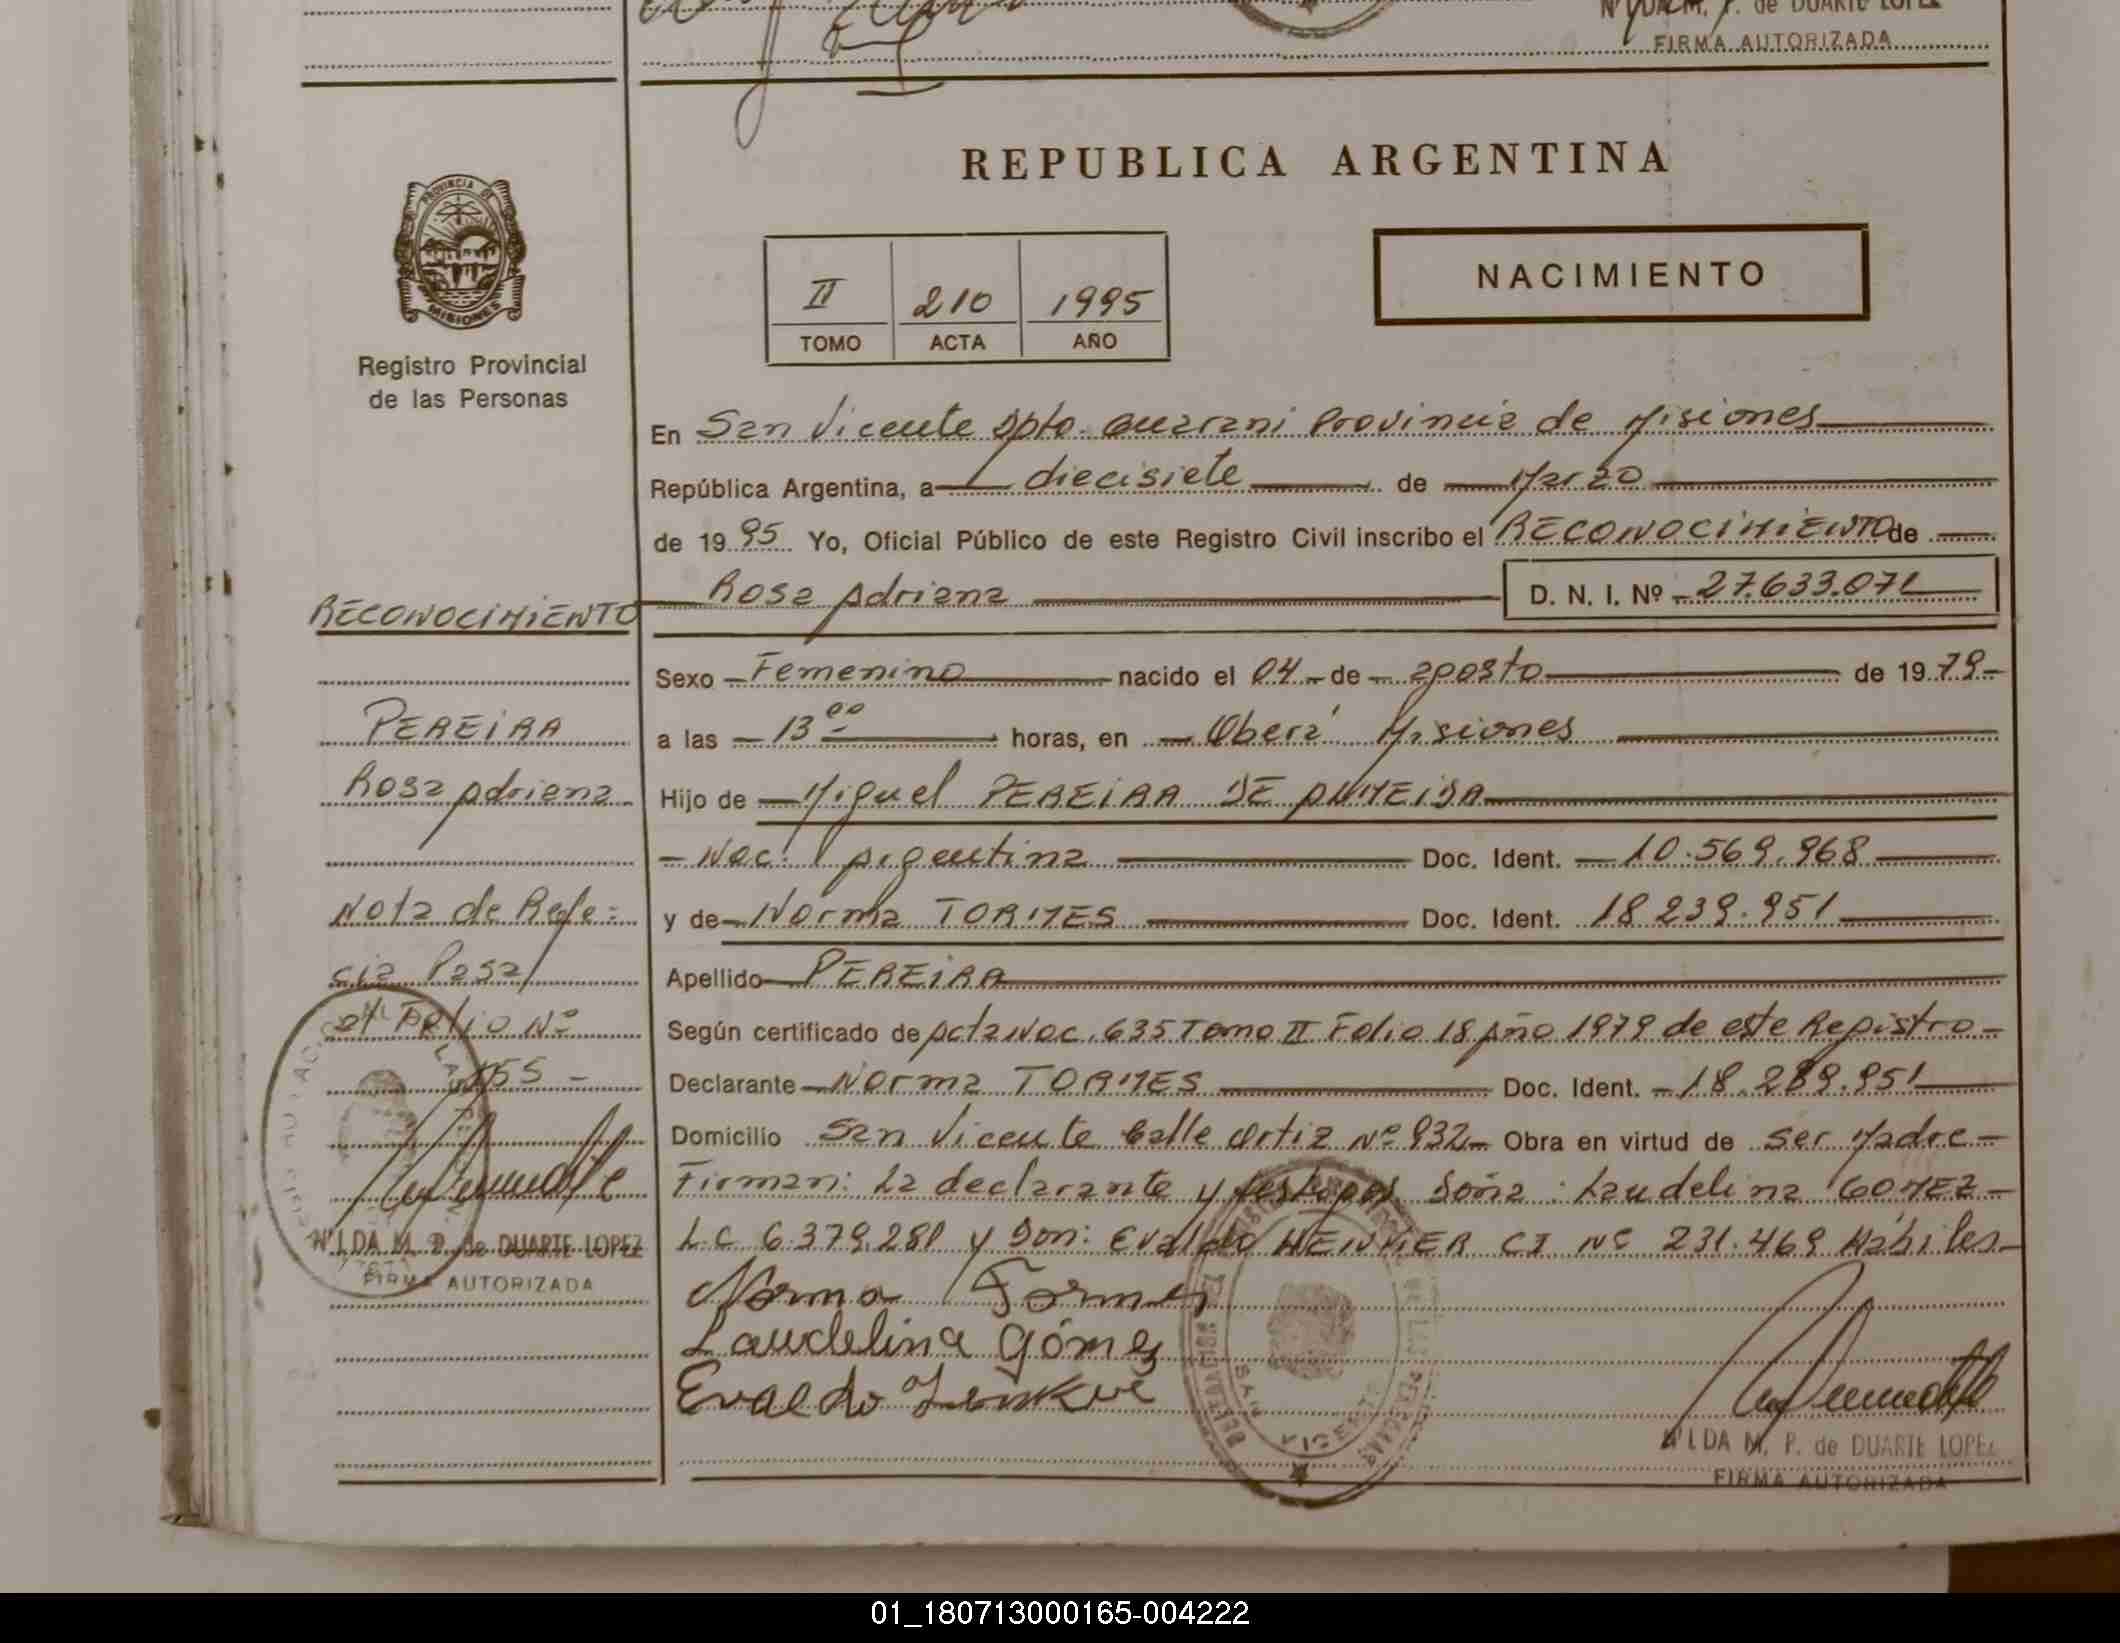 Nº DA M. P. de DUARTE LOPEZ
FIRMA AUTORIZADA
PROVINCIA DE
MISIONES
Registro Provincial
de las Personas
REPUBLICA ARGENTINA
II 210 1995
TOMO ACTA AÑO
NACIMIENTO
En San Vicente Dpto. Guarani Provincia de Misiones
República Argentina, a diecisiete de Marzo
de 1995 Yo, Oficial Público de este Registro Civil inscribo el RECONOCIMIENTO de
Rosa Adriana D. N. I. Nº 27.633.071
Sexo Femenino nacido el 04 de agosto de 1979
a las 13 00 horas, en Oberá Misiones
Hijo de Miguel PEREIRA DE ALMEIDA
Nac. Argentina Doc. Ident. 10.569.968
y de Norma TORMES Doc. Ident. 18.239.951
Apellido PEREIRA
Según certificado de Acta Nac. 635 Tomo II Folio 18 Año 1979 de este Registro
Declarante Norma TORMES Doc. Ident. 18.289.951
Domicilio San Vicente Calle Ortiz Nº 932 Obra en virtud de ser Madre
Firman: La declarante y testigos Doña: Laudelina GOMEZ
L.C 6.379.281 y Don: Evaldo CI Nº 231.469 Hábiles
Norma Tormes
Laudelina Gómez
Evaldo
WILDA M. P. de DUARTE LOPEZ
FIRMA AUTORIZADA
RECONOCIMIENTO
PEREIRA
Rosa Adriana
Nota de Refe=
cia Pasa
al Folio Nº
155
WILDA M. P. de DUARTE LOPEZ
FIRMA AUTORIZADA
01_180713000165-004222